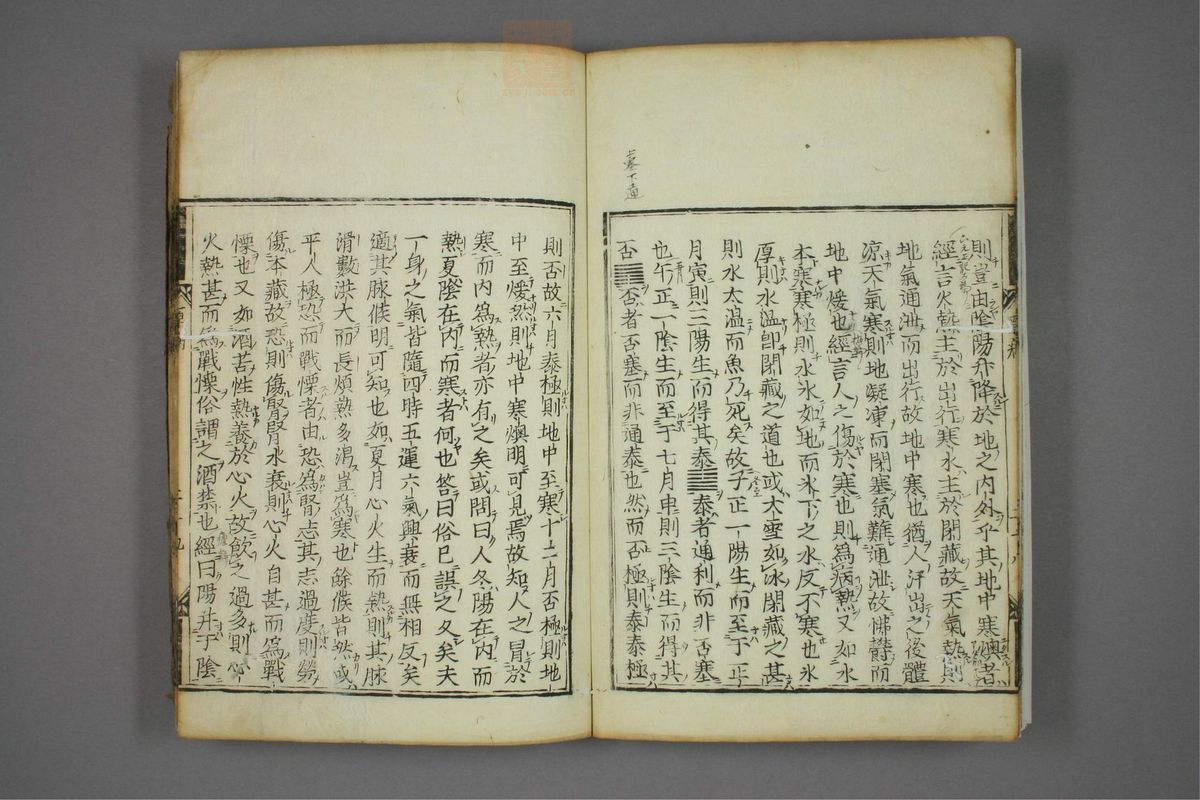 則豈由陰陽升降於地之內外乎其地中寒燠者
經言火熱主於出行寒水主於閉藏故天氣熱則
地氣通泄而出行故地中寒也猶人汗出之後體
凉天氣寒則地凝凍而閉塞氣難通泄故怫鬱而
地中煖也經言人之傷於寒也則爲病熱又如水
本寒寒極則水氷如地而氷下之水反不寒也氷
厚則水溫卽閉藏之道也或大雪如氷閉藏之甚
則水太溫而魚乃死矣故子正一陽生而至于正
月寅則三陽生而得其泰䷊泰者通利而非否塞
也午正一陰生而至于七月申則三陰生而得其
否䷋否者否塞而非通泰也然而否極則泰泰極
上塞下通
則否故六月泰極則地中至寒十二月否極則地
中至煖然則地中寒燠明可見焉故知人之冒於
寒而內爲熱者亦有之矣或問曰人冬陽在內而
熱夏陰在內而寒者何也答曰俗已誤之久矣夫
一身之氣皆隨四時五運六氣興衰而無相反矣
適其脉候明可知也如夏月心火生而熱則其脉
滑數洪大而長煩熱多渴豈爲寒也餘候皆然或
平人極恐而戰慄者由恐爲腎志其志過度則勞
傷本藏故恐則傷腎腎水衰則心火自甚而爲戰
慄也又如酒苦性熱養於心火故飮之過多則心
火熱甚而爲戰慄俗謂之酒禁也經曰陽并于陰